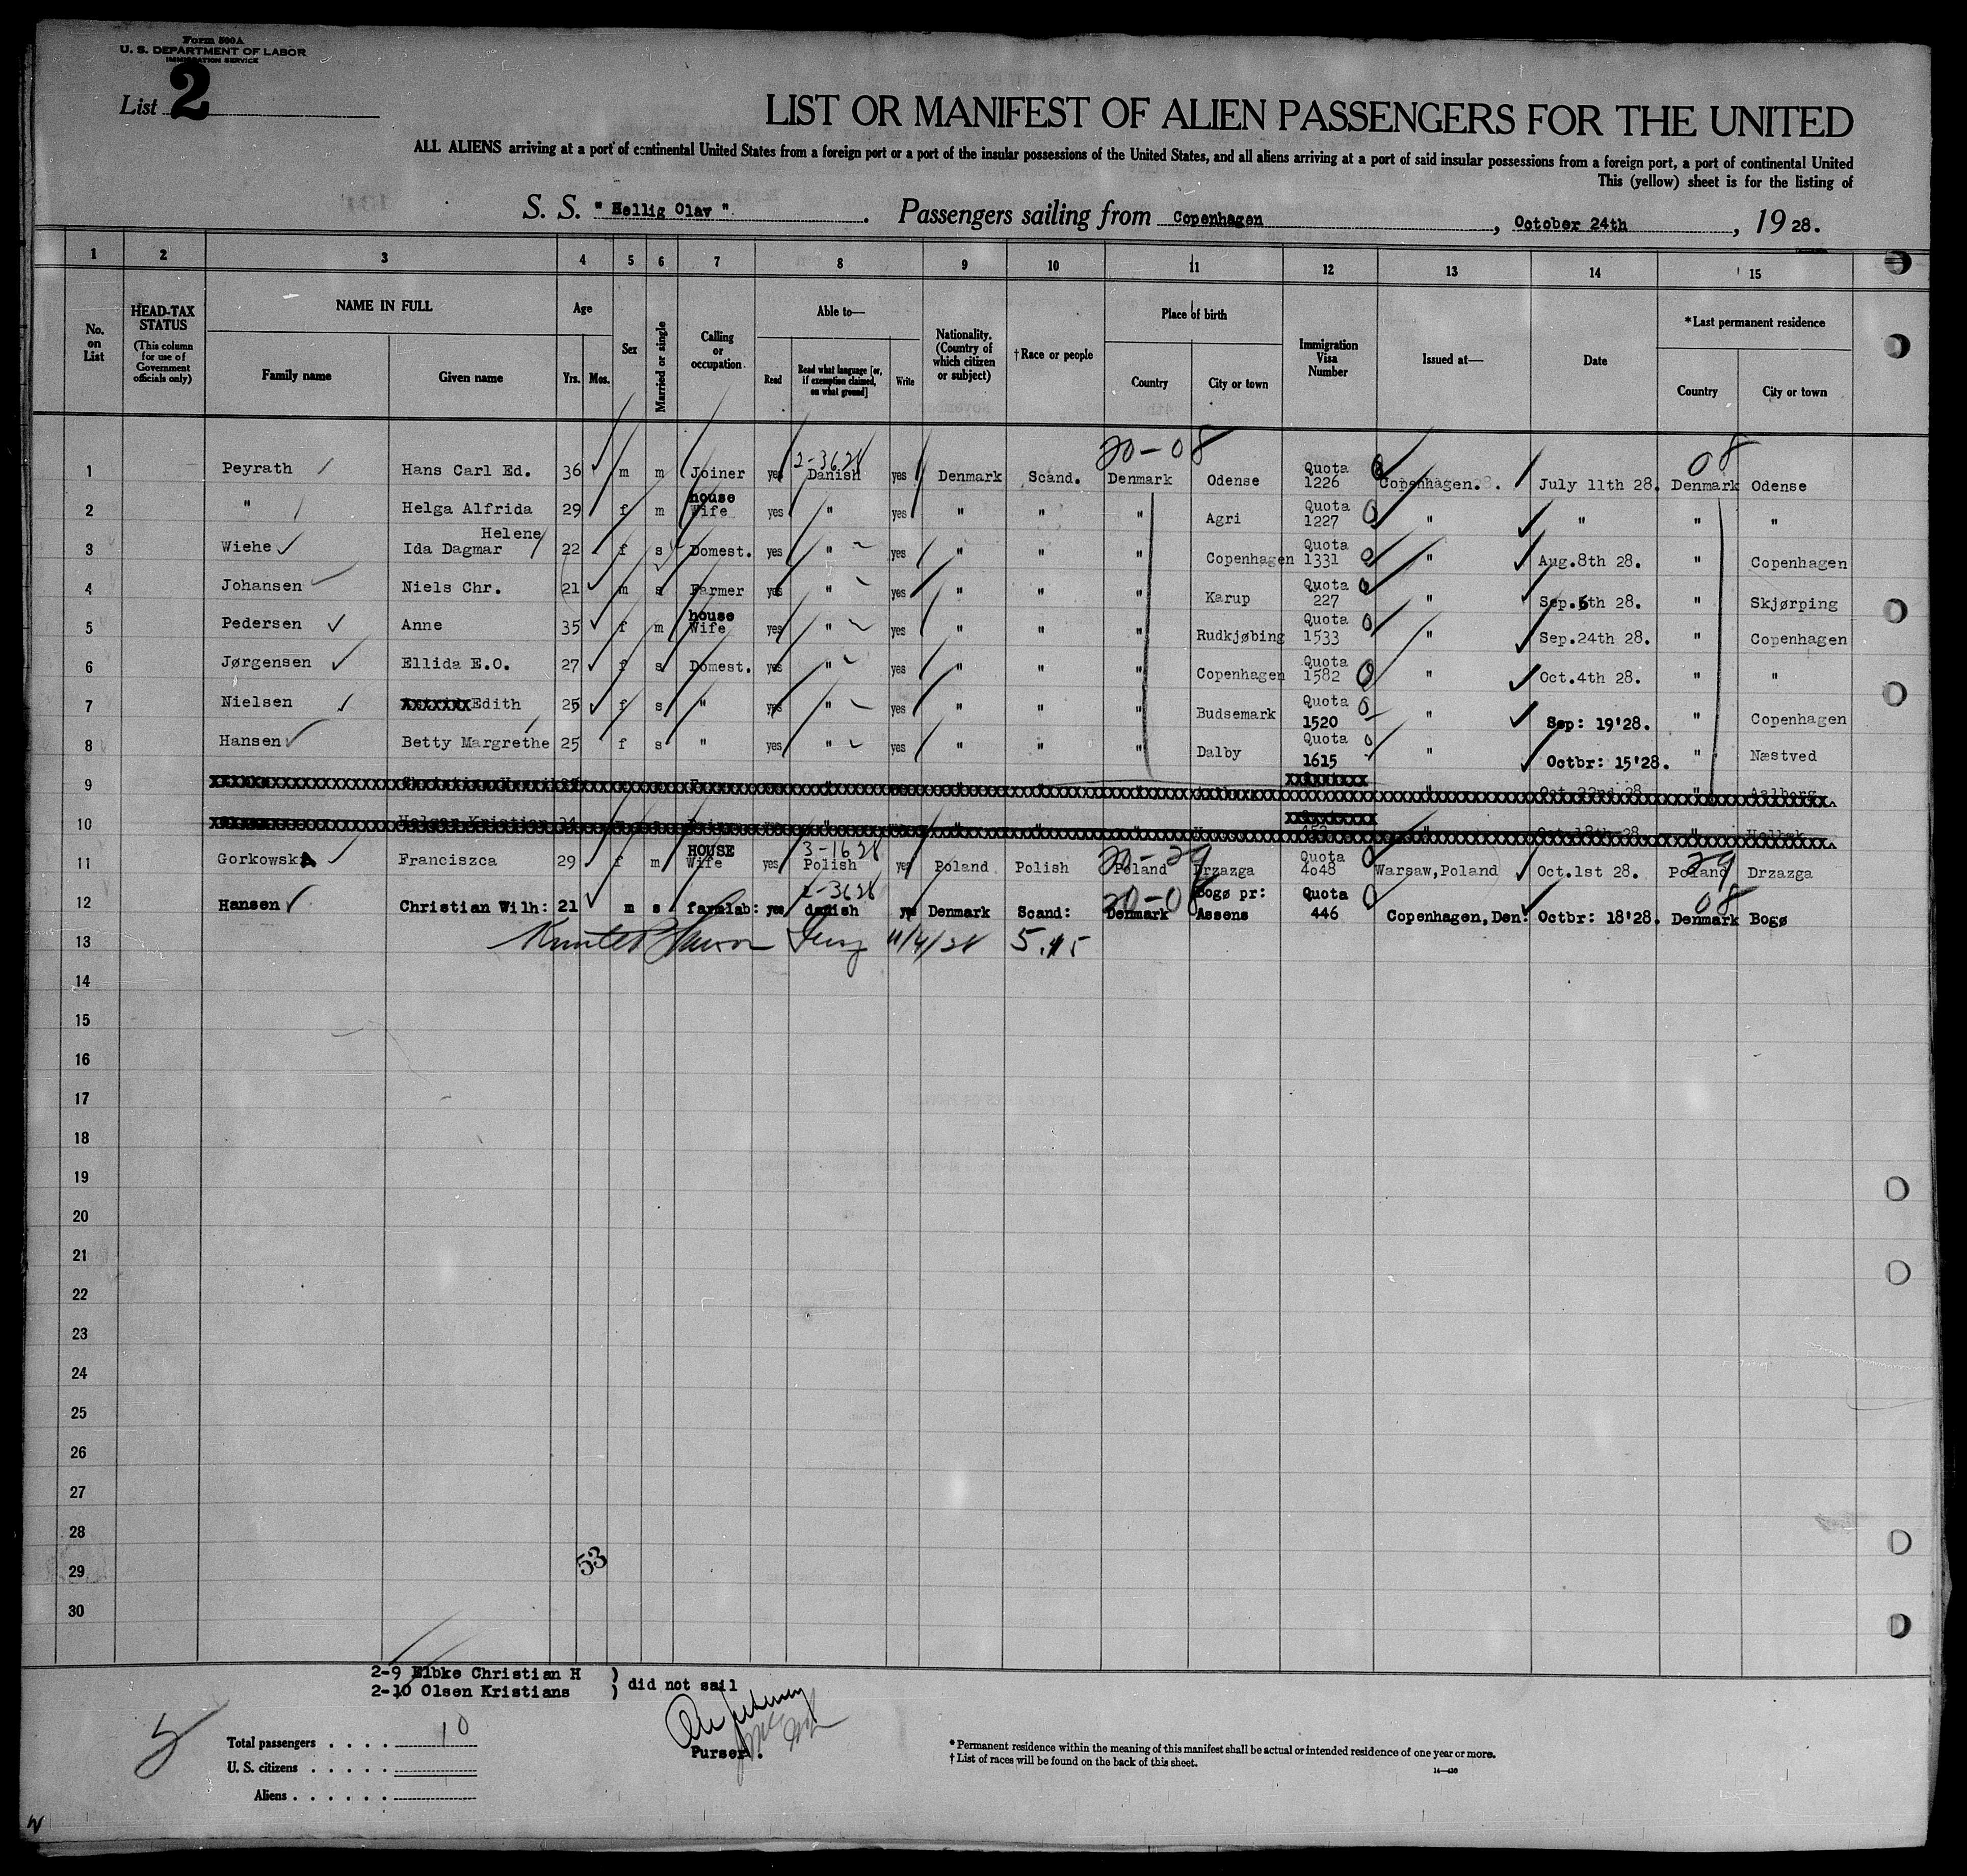 Form 500A
U. S. DEPARTMENT OF LABOR
IMMIGRATION SERVICE
List 2
LIST OR MANIFEST OF ALIEN PASSENGERS FOR THE UNITED
ALL ALIENS arriving at a port of continental United States from a foreign port or a port of the insular possessions of the United States, and all aliens arriving at a port of said insular possessions from a foreign port, a port of continental United
This (yellow) sheet is for the listing of
S. S. "Hellig Olav". Passengers sailing from Copenhagen, October 24th, 1928.
1 2 3 4 5 6 7 8 9 10 11 12 13 14 15
No. on List
HEAD-TAX STATUS (This column for use of Government officials only)
NAME IN FULL
Family name Given name
Age
Yrs. Mos.
Sex
Married or single
Calling or occupation
Able to—
Read Read what language [or, if exemption claimed, on what ground] Write
Nationality. (Country of which citizen or subject)
†Race or people
Place of birth
Country City or town
Immigration Visa Number
Issued at—
Date
*Last permanent residence
Country City or town
20-08 08
2-3628
1 Peyrath Hans Carl Ed. 36 m m Joiner yes Danish yes Denmark Scand. Denmark Odense Quota 1226 Copenhagen. July 11th 28. Denmark Odense
2 " Helga Alfrida 29 f m house Wife yes " yes " " " Agri Quota 1227 " " " "
3 Wiehe Ida Dagmar Helene 22 f s Domest. yes " yes " " " Copenhagen Quota 1331 " Aug.8th 28. " Copenhagen
4 Johansen Niels Chr. 21 m s Farmer yes " yes " " " Karup Quota 227 " Sep.6th 28. " Skjørping
5 Pedersen Anne 35 f m house Wife yes " yes " " " Rudkjøbing Quota 1533 " Sep.24th 28. " Copenhagen
6 Jørgensen Ellida E.O. 27 f s Domest. yes " yes " " " Copenhagen Quota 1582 " Oct.4th 28. " "
7 Nielsen Edith 25 f s " yes " yes " " " Budsemark Quota 1520 " Sep: 19'28. " Copenhagen
8 Hansen Betty Margrethe 25 f s " yes " yes " " " Dalby Quota 1615 " Octbr: 15'28. " Næstved
9 Oct.22nd 28 " Aalborg
10 Oct.18th 28 " Holbæk
3-1628 20-29 29
11 GorkowskA Franciszca 29 f m HOUSE Wife yes Polish yes Poland Polish Poland Drzazga Quota 4o48 Warsaw,Poland Oct.1st 28. Poland Drzazga
2-3628 20-08 08
12 Hansen Christian Wilh: 21 m s farmlab: yes danish yes Denmark Scand: Denmark Bogø pr: Assens Quota 446 Copenhagen,Den: Octbr: 18'28. Denmark Bogø
13 11/4/28
14
15
16
17
18
19
20
21
22
23
24
25
26
27
28
29
30
53
2-9 Elbke Christian H ) did not sail
2-10 Olsen Kristians )
Purser.
Total passengers . . . . 10
U. S. citizens . . . . .
Aliens . . . . . .
* Permanent residence within the meaning of this manifest shall be actual or intended residence of one year or more.
† List of races will be found on the back of this sheet.
14—430